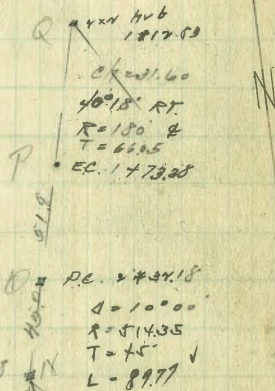 Q
4x4 Hub
1812.83
Ch = 31.60
40°18' RT.
R = 180' ¢
T = 66.05
P
E.C. 1+73.38
51.8
P.C. 2+37.18
Δ = 10°00'
R = 514.35
T = 45'
L = 89.77